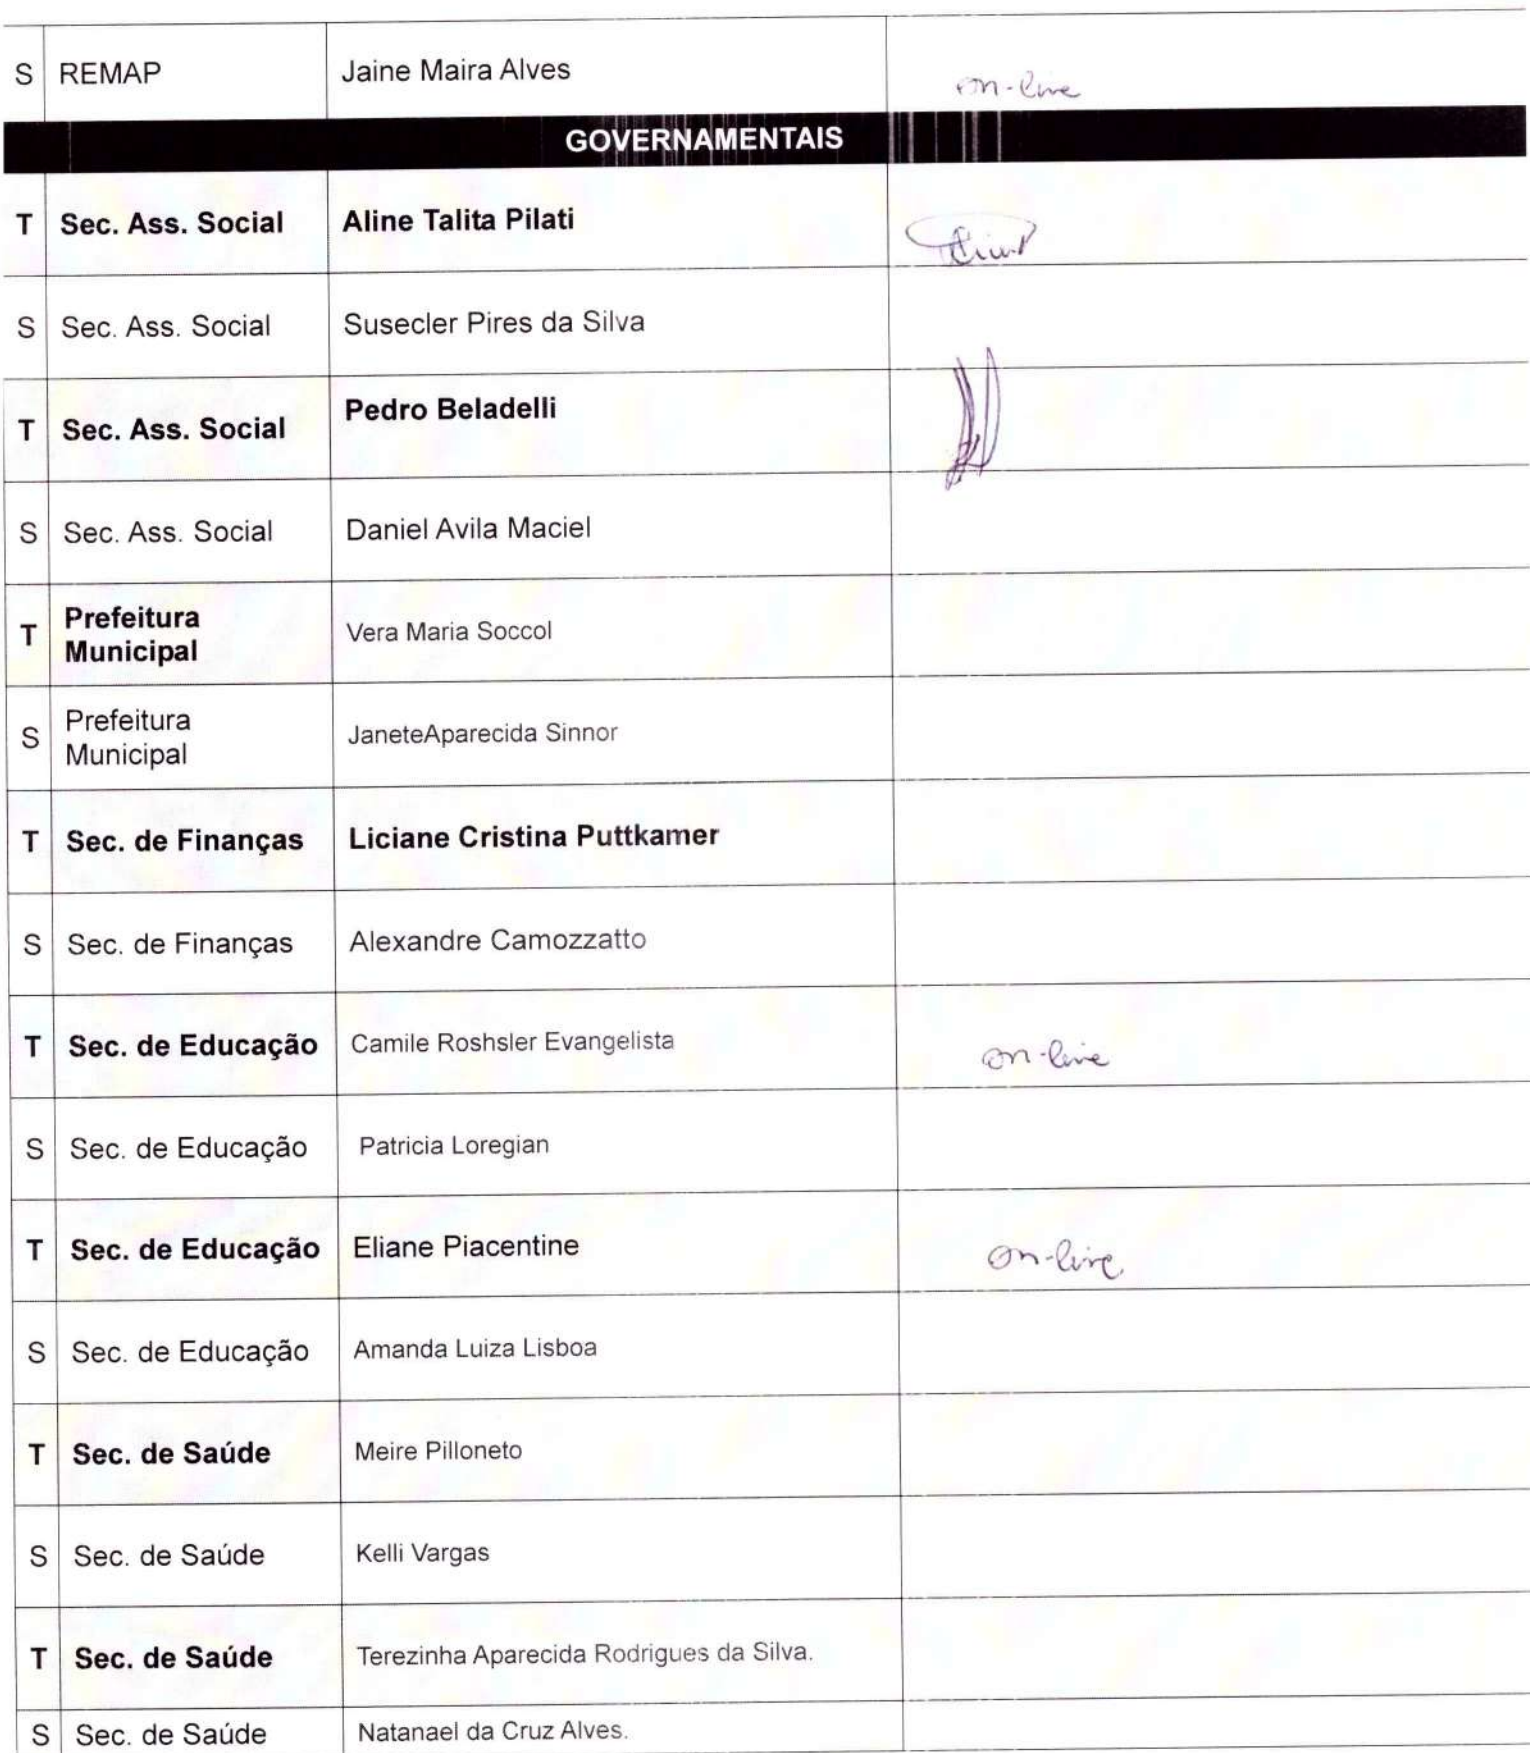 S REMAP Jaine Maira Alves on-line
GOVERNAMENTAIS
T Sec. Ass. Social Aline Talita Pilati
S Sec. Ass. Social Susecler Pires da Silva
T Sec. Ass. Social Pedro Beladelli
S Sec. Ass. Social Daniel Avila Maciel
T Prefeitura
Municipal Vera Maria Soccol
S Prefeitura
Municipal JaneteAparecida Sinnor
T Sec. de Finanças Liciane Cristina Puttkamer
S Sec. de Finanças Alexandre Camozzatto
T Sec. de Educação Camile Roshsler Evangelista on-line
S Sec. de Educação Patricia Loregian
T Sec. de Educação Eliane Piacentine on-line
S Sec. de Educação Amanda Luiza Lisboa
T Sec. de Saúde Meire Pilloneto
S Sec. de Saúde Kelli Vargas
T Sec. de Saúde Terezinha Aparecida Rodrigues da Silva.
S Sec. de Saúde Natanael da Cruz Alves.